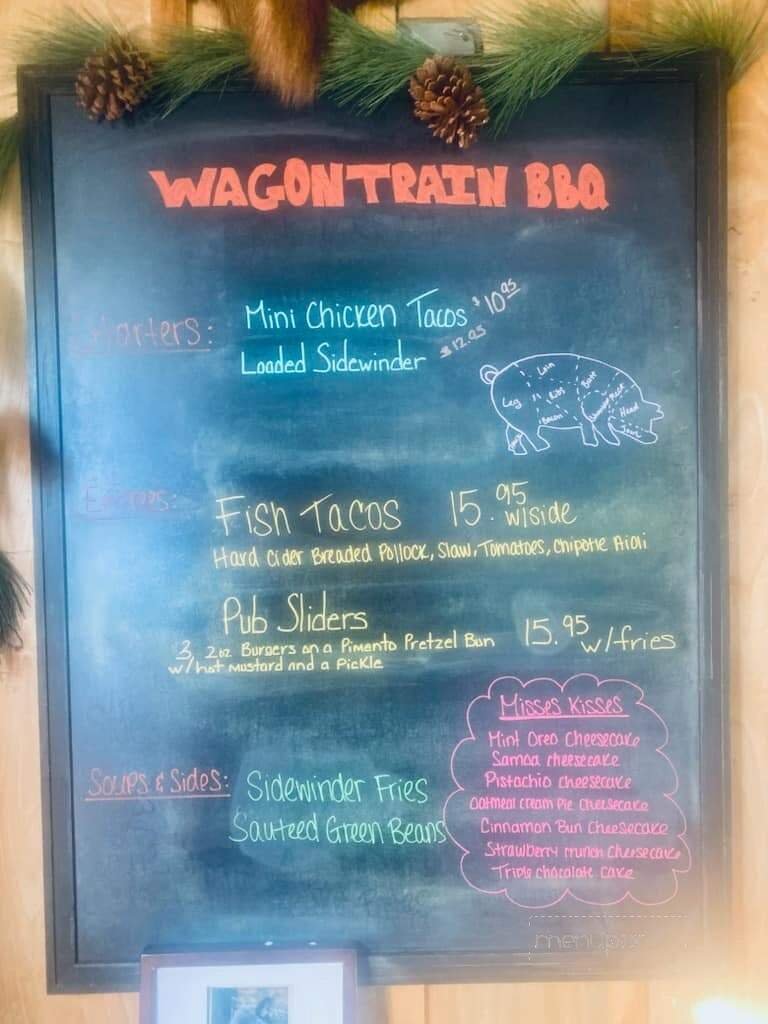 WAGONTRAIN BBQ
Starters: Mini Chicken Tacos $10.95
Loaded Sidewinder $12.95
Loin
Leg
Ribs
Butt
Bacon
Head
Jowl
Entrees:
Fish Tacos 15.95 w/side
Hard Cider Breaded Pollock, Slaw, Tomatoes, Chipotle Aioli
Pub Sliders 15.95 w/fries
3 2oz Burgers on a Pimento Pretzel Bun
w/hot mustard and a Pickle
Misses Kisses
Mint Oreo Cheesecake
Samoa cheesecake
Pistachio cheesecake
Oatmeal cream Pie Cheesecake
Cinnamon Bun Cheesecake
Strawberry crunch Cheesecake
Triple chocolate cake
Soups & Sides: Sidewinder Fries
Sauteed Green Beans